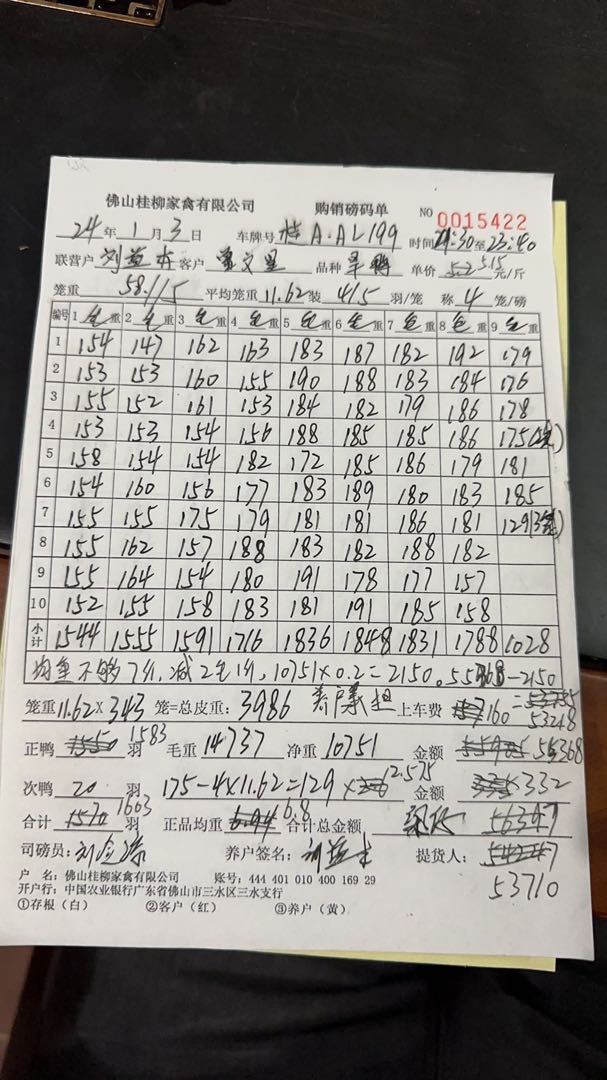 佛山桂柳家禽有限公司 购销磅码单 NO 0015422
24年1月3日 车牌号 桂A.AL199 时间21:30至23:40
联营户 刘益本 客户 品种 旱鸭 单价 5.15元/斤
笼重 58.1/5 平均笼重11.62装 4/5 羽/笼 称4笼/磅
编号 1毛重 2毛重 3毛重 4毛重 5毛重 6毛重 7毛重 8毛重 9毛重
1 154 147 162 163 183 187 182 192 179
2 153 153 160 155 190 188 183 184 176
3 155 152 161 153 184 182 179 186 178
4 153 153 154 156 188 185 185 186 175(次)
5 158 154 154 182 172 185 186 179 181
6 154 160 156 177 183 189 180 183 185
7 155 155 175 179 181 181 186 181 129(3笼)
8 155 162 157 188 183 182 188 182
9 155 164 154 180 191 178 177 157
10 152 155 158 183 181 191 185 158
小计 1544 1555 1591 1716 1836 1848 1831 1788 1028
均重不够7斤,减2毛1斤,10751×0.2=2150。55368-2150
笼重11.62×343笼=总皮重:3986 养户承担 上车费 160 =53755
53218
正鸭 1550 1583 羽 毛重 14737 净重 10751 金额 55368
次鸭 20 羽 175-4×11.62=129× 2.575 金额 332
合计 1570 1603 羽 正品均重 6.94 6.8 合计总金额 56347
司磅员: 养户签名:刘益本 提货人:
53710
户 名:佛山桂柳家禽有限公司 账号:444 401 010 400 169 29
开户行:中国农业银行广东省佛山市三水区三水支行
①存根(白) ②客户(红) ③养户(黄)